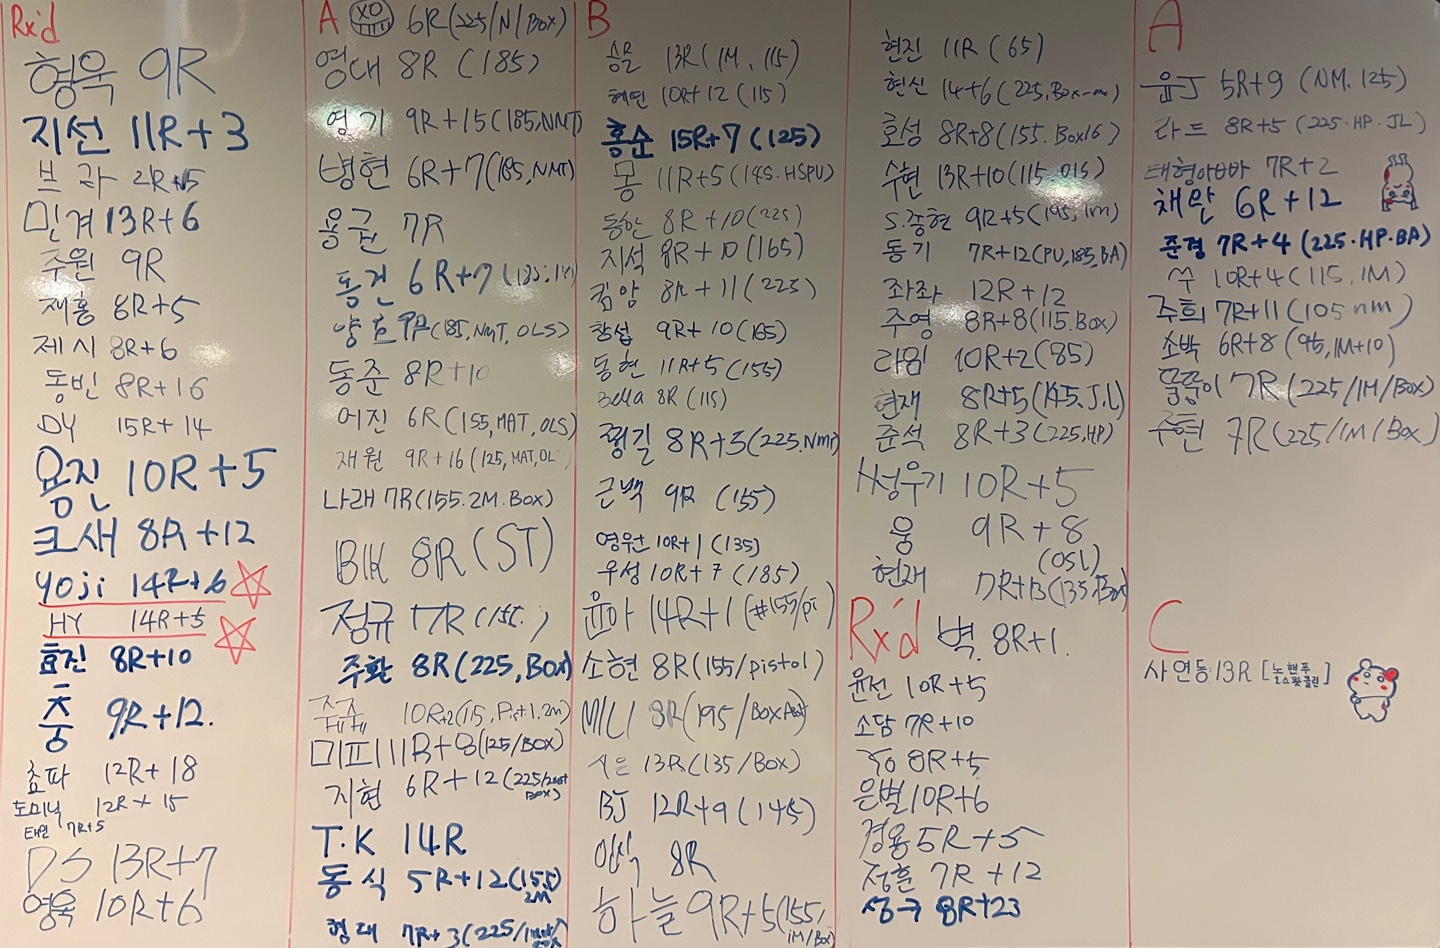 Rx'd
형욱 9R
지선 11R+3
브라 2R+5
민경 13R+6
주원 9R
재홍 8R+5
제시 8R+6
동빈 8R+16
DY 15R+14
용진 10R+5
크새 8R+12
yoji 14R+6
HY 14R+5
효진 8R+10
훙 9R+12.
효파 12R+18
도미닉 12R+15
태민 7R+5
DS 13R+7
영욱 10R+6
A XO 6R(225/N/Box)
영대 8R (185)
영기 9R+15(185,NMT)
병현 6R+7(185,NMT)
용균 7R
동건 6R+7
양호 (185,NMT,OLS)
동준 8R+10
어진 6R(155,MAT,OLS)
재원 9R+16(125,MAT,OL
나래 7R(155.2M.Box)
BK 8R(ST)
정규 17R(155.)
주환 8R(225,Box)
10R+2(115,Pist,1.2m)
미피 11R+8(125/BOX)
지현 6R+12(225/
BOX)
T.K 14R
동식 5R+12(155
2M)
형대 7R+3(225/
B
승모 13R(1M, 115)
혜민 10R+12(115)
홍순 15R+7(125)
몽 11R+5(145.HSPU)
동한 8R+10(225)
지석 8R+10(165)
김암 8R+11(225)
창섭 9R+10(185)
동현 11R+5(155)
Bella 8R(115)
정길 8R+5(225.Nmt)
근백 9R (155)
영원 10R+1(135)
우성 10R+7(185)
윤아 14R+1(#155/pi)
소현 8R(155/pistol)
MILI 8R(195/Box
시은 13R(135/Box)
BJ 12R+9(145)
인식 8R
하늘 9R+5(155/
1M/Box)
현진 11R(65)
현신 14+6(225,Box-
호성 8R+8(155.Box16)
수현 13R+10(115.OLS)
S.종현 9R+5(195,1M)
동기 7R+12(PU,185,BA)
좌좌 12R+12
주영 8R+8(115.Box)
라임 10R+2(85)
현재 8R+5(145.J.L)
준석 8R+3(225,HP)
H성우기 10R+5
웅 9R+8
(OSL)
현재 17R+13(135.Box)
Rx'd 벽. 8R+1.
윤선 10R+5
소담 7R+10
8R+5
은별 10R+6
경용 5R+5
정훈 7R+12
성구 8R+23
A
윤J 5R+9(NM.125)
라트 8R+5(225.HP.JL)
태형아빠바 7R+2
채완 6R+12
준경 7R+4(225.HP.BA)
쑤 10R+4(115,1M)
주희 7R+11(105nm)
소박 6R+8(95,1M+10)
뭄뭄이 7R(225/1M/Box)
주현 7R(225/1M/Box)
C
사연동:13R [노핸푸
오스팟클린]